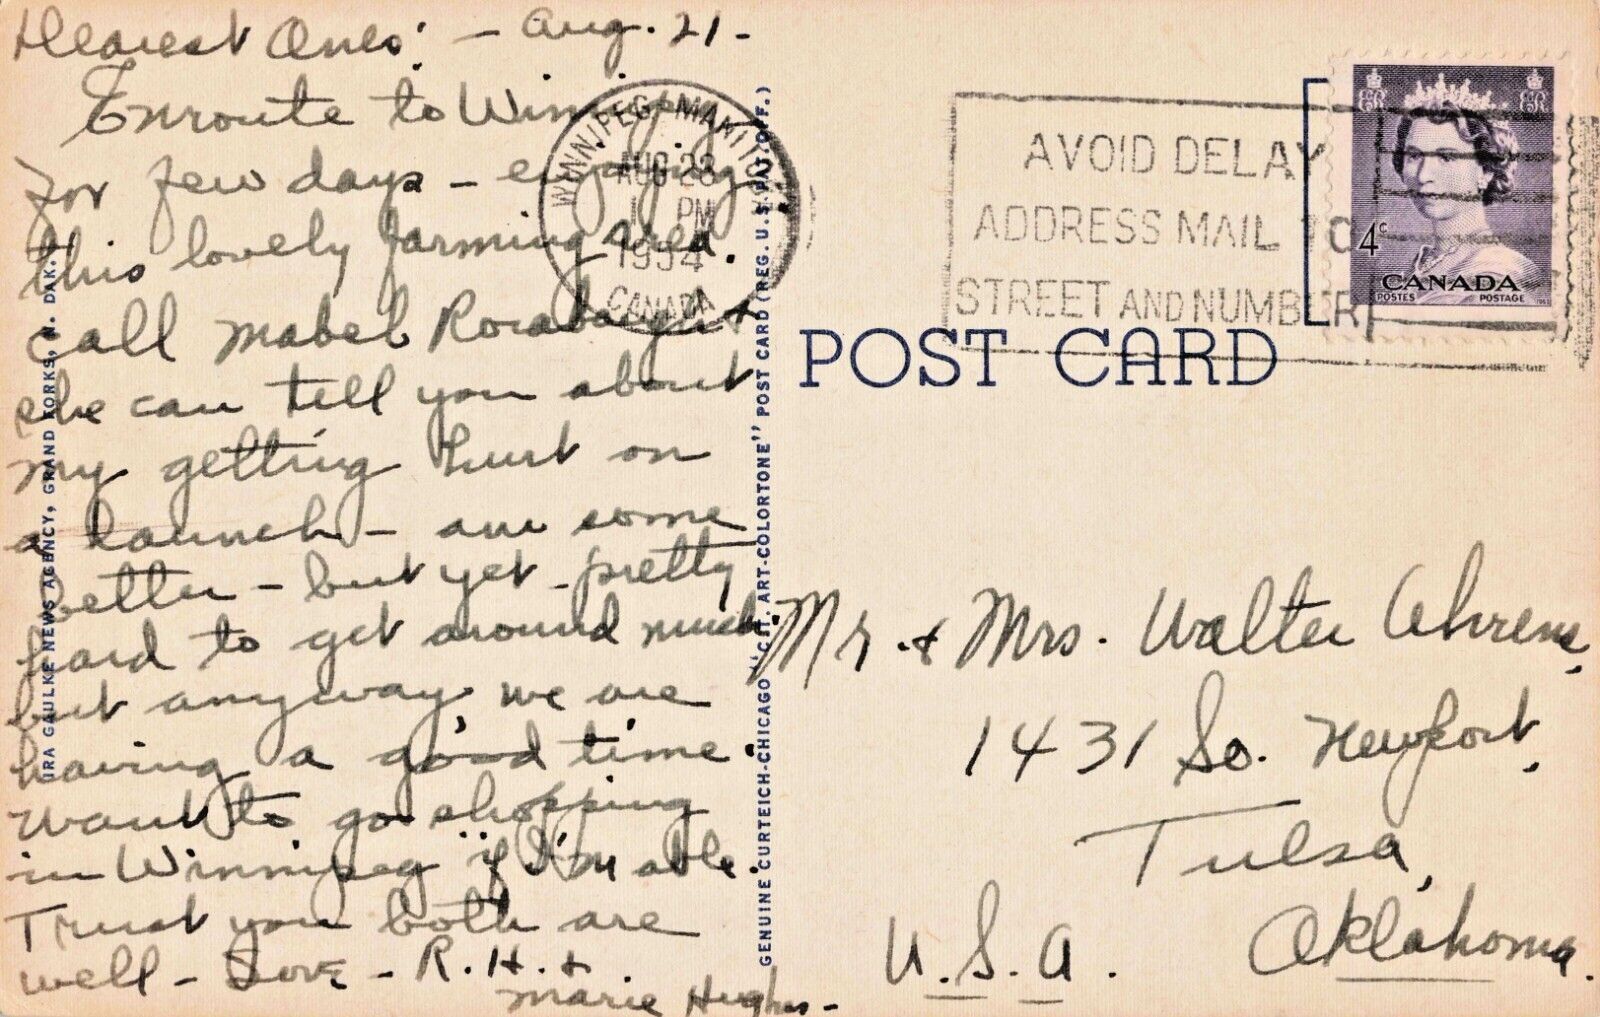 Dearest Ones: - Aug. 21 -
Enroute to Winnipeg
for few days - enjoying
this lovely farming area.
call Mabel Rorabaugh &
she can tell you about
my getting hurt on
a launch - am some
better - but yet - pretty
hard to get around much.
but anyway, we are
having a good time.
Want to go shopping
in Winnipeg "if I'm able.
Trust you both are
well - Love - R.H. &
Marie Hughes -
IRA GAULKE NEWS AGENCY, GRAND FORKS, N. DAK.
GENUINE CURTEICH-CHICAGO "C.T. ART-COLORTONE" POST CARD (REG. U.S. PAT. OFF.)
WINNIPEG MANITOBA
AUG 23
1 PM
1954
CANADA
AVOID DELAY
ADDRESS MAIL TO
STREET AND NUMBER
EIIR EIIR
4c
CANADA
POSTES POSTAGE
POST CARD
Mr. & Mrs. Walter Ahrens,
1431 So. Newport,
Tulsa,
Oklahoma.
U.S.A.